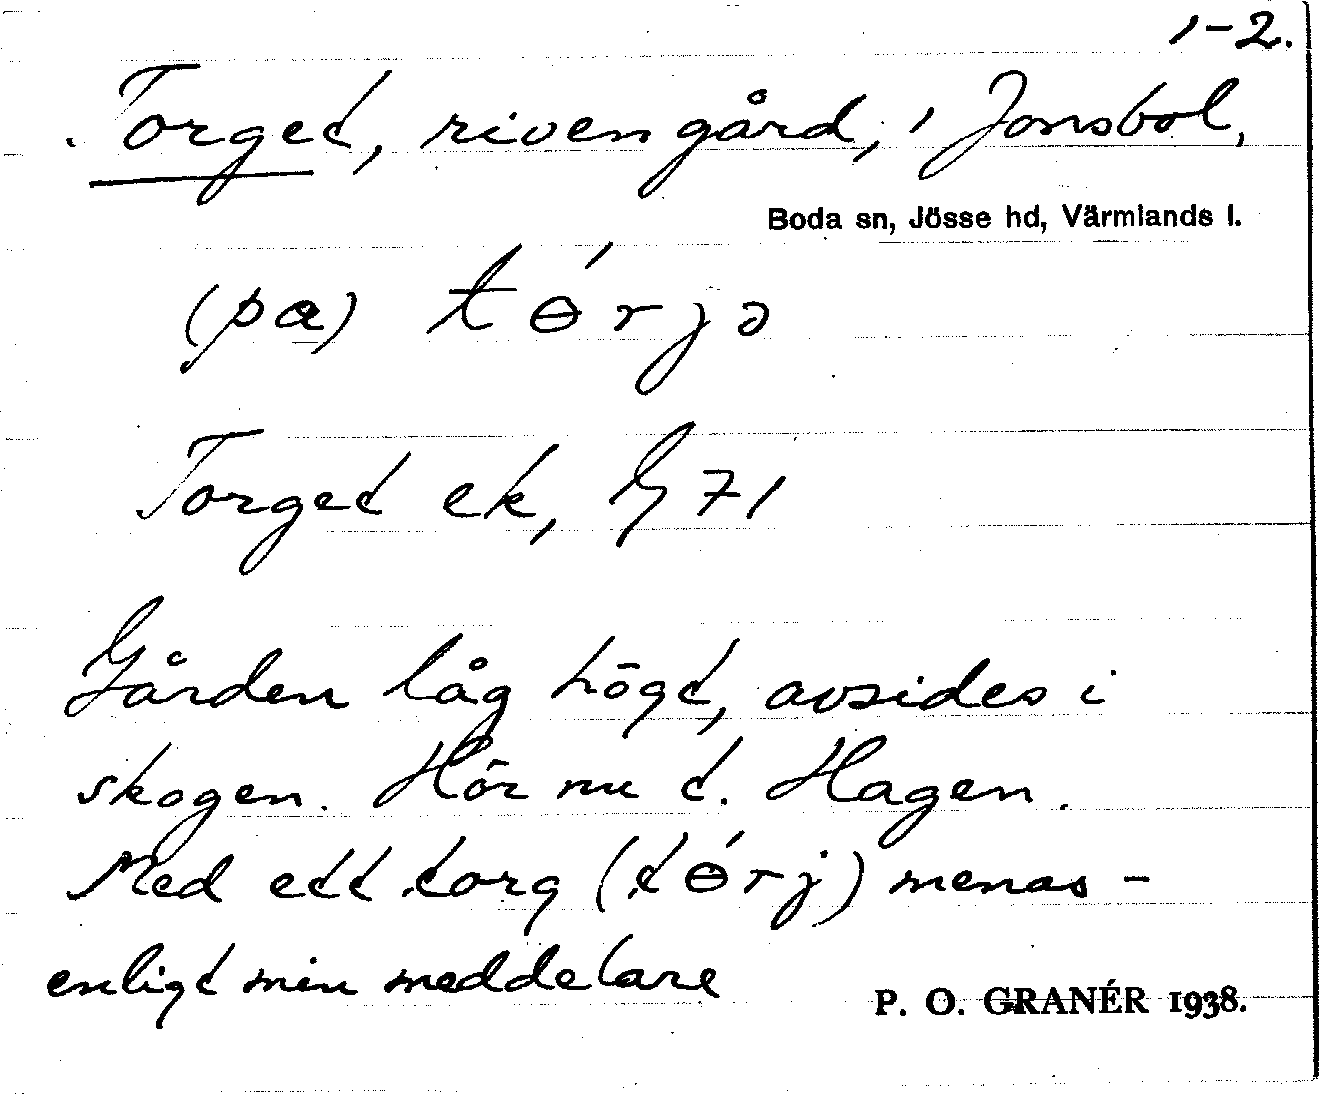 1-2.
Torget, riven gård, i Jonsbol,
Boda sn, Jösse hd, Värmlands l.
(pɑ) tɵ́rjə
Torget ek, G 71
Gården låg högt, avsides i
skogen. Hör nu t. Hagen.
Med ett torg (tɵ́rj) menas -
enligt min meddelare
P. O. GRANÉR 1938.